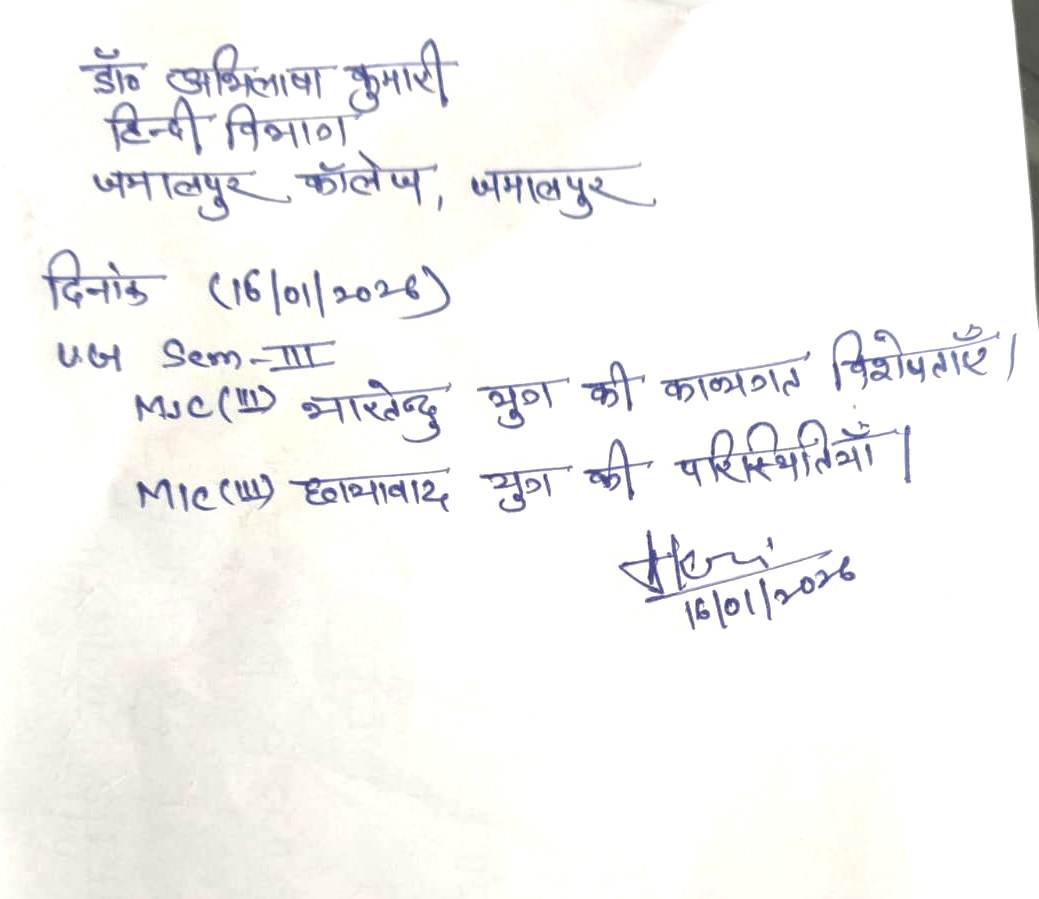 डॉ० अभिलाषा कुमारी
हिन्दी विभाग
जमालपुर कॉलेज, जमालपुर
दिनांक (16/01/2026)
Sem-III
MJC(III) भारतेन्दु युग की काव्यगत विशेषताएँ।
MIC(III) छायावाद युग की परिस्थितियाँ।
16/01/2026